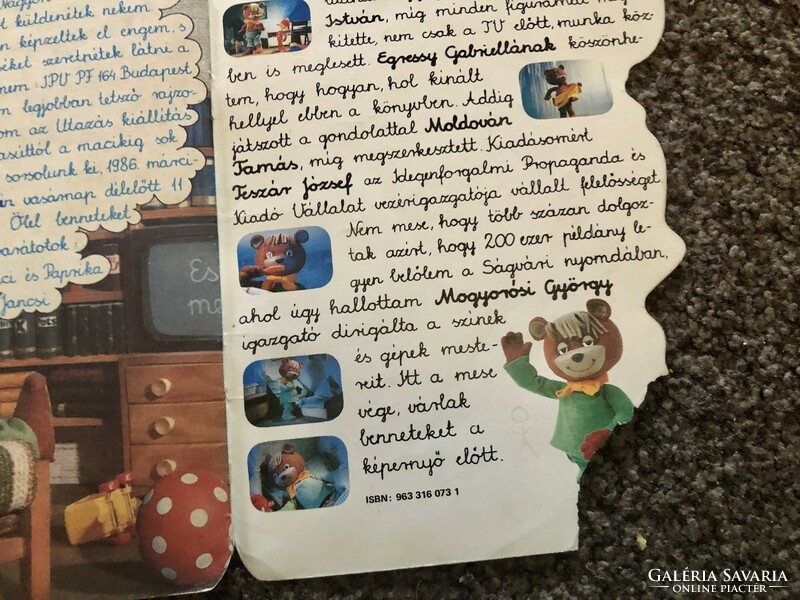 küldenétek nekem
képzeltek el engem, s
szeretnétek látni a
JPV PF 164 Budapest
legjobban tetsző rajzo-
az Utazás kiállítás
a macikig sok
sorsolunk ki, 1986. márci-
vasárnap délelőtt 11
Ölel benneteket
barátotok:
és Paprika
Jancsi
Es
me
István, míg minden figurámat meg
kitette, nem csak a TV előtt, munka köz-
ben is meglesett. Egressy Gabriellának köszönhe-
tem, hogy hogyan, hol kínált
hellyel ebben a könyvben. Addig
játszott a gondolattal Moldován
Tamás, míg megszerkesztett. Kiadásomért
Teszár József az Idegenforgalmi Propaganda és
Kiadó Vállalat vezérigazgatója vállalt felelősséget.
Nem mese, hogy több százan dolgoz-
tak azért, hogy 200 ezer példány le-
gyen belőlem a Ságvári nyomdában,
ahol úgy hallottam Mogyorósi György
igazgató dirigálta a színek
és gépek meste-
reit. Itt a mese
vége, várlak
benneteket a
képernyő előtt.
ISBN: 963 316 073 1
GALÉRIA SAVARIA
ONLINE PIACTÉR